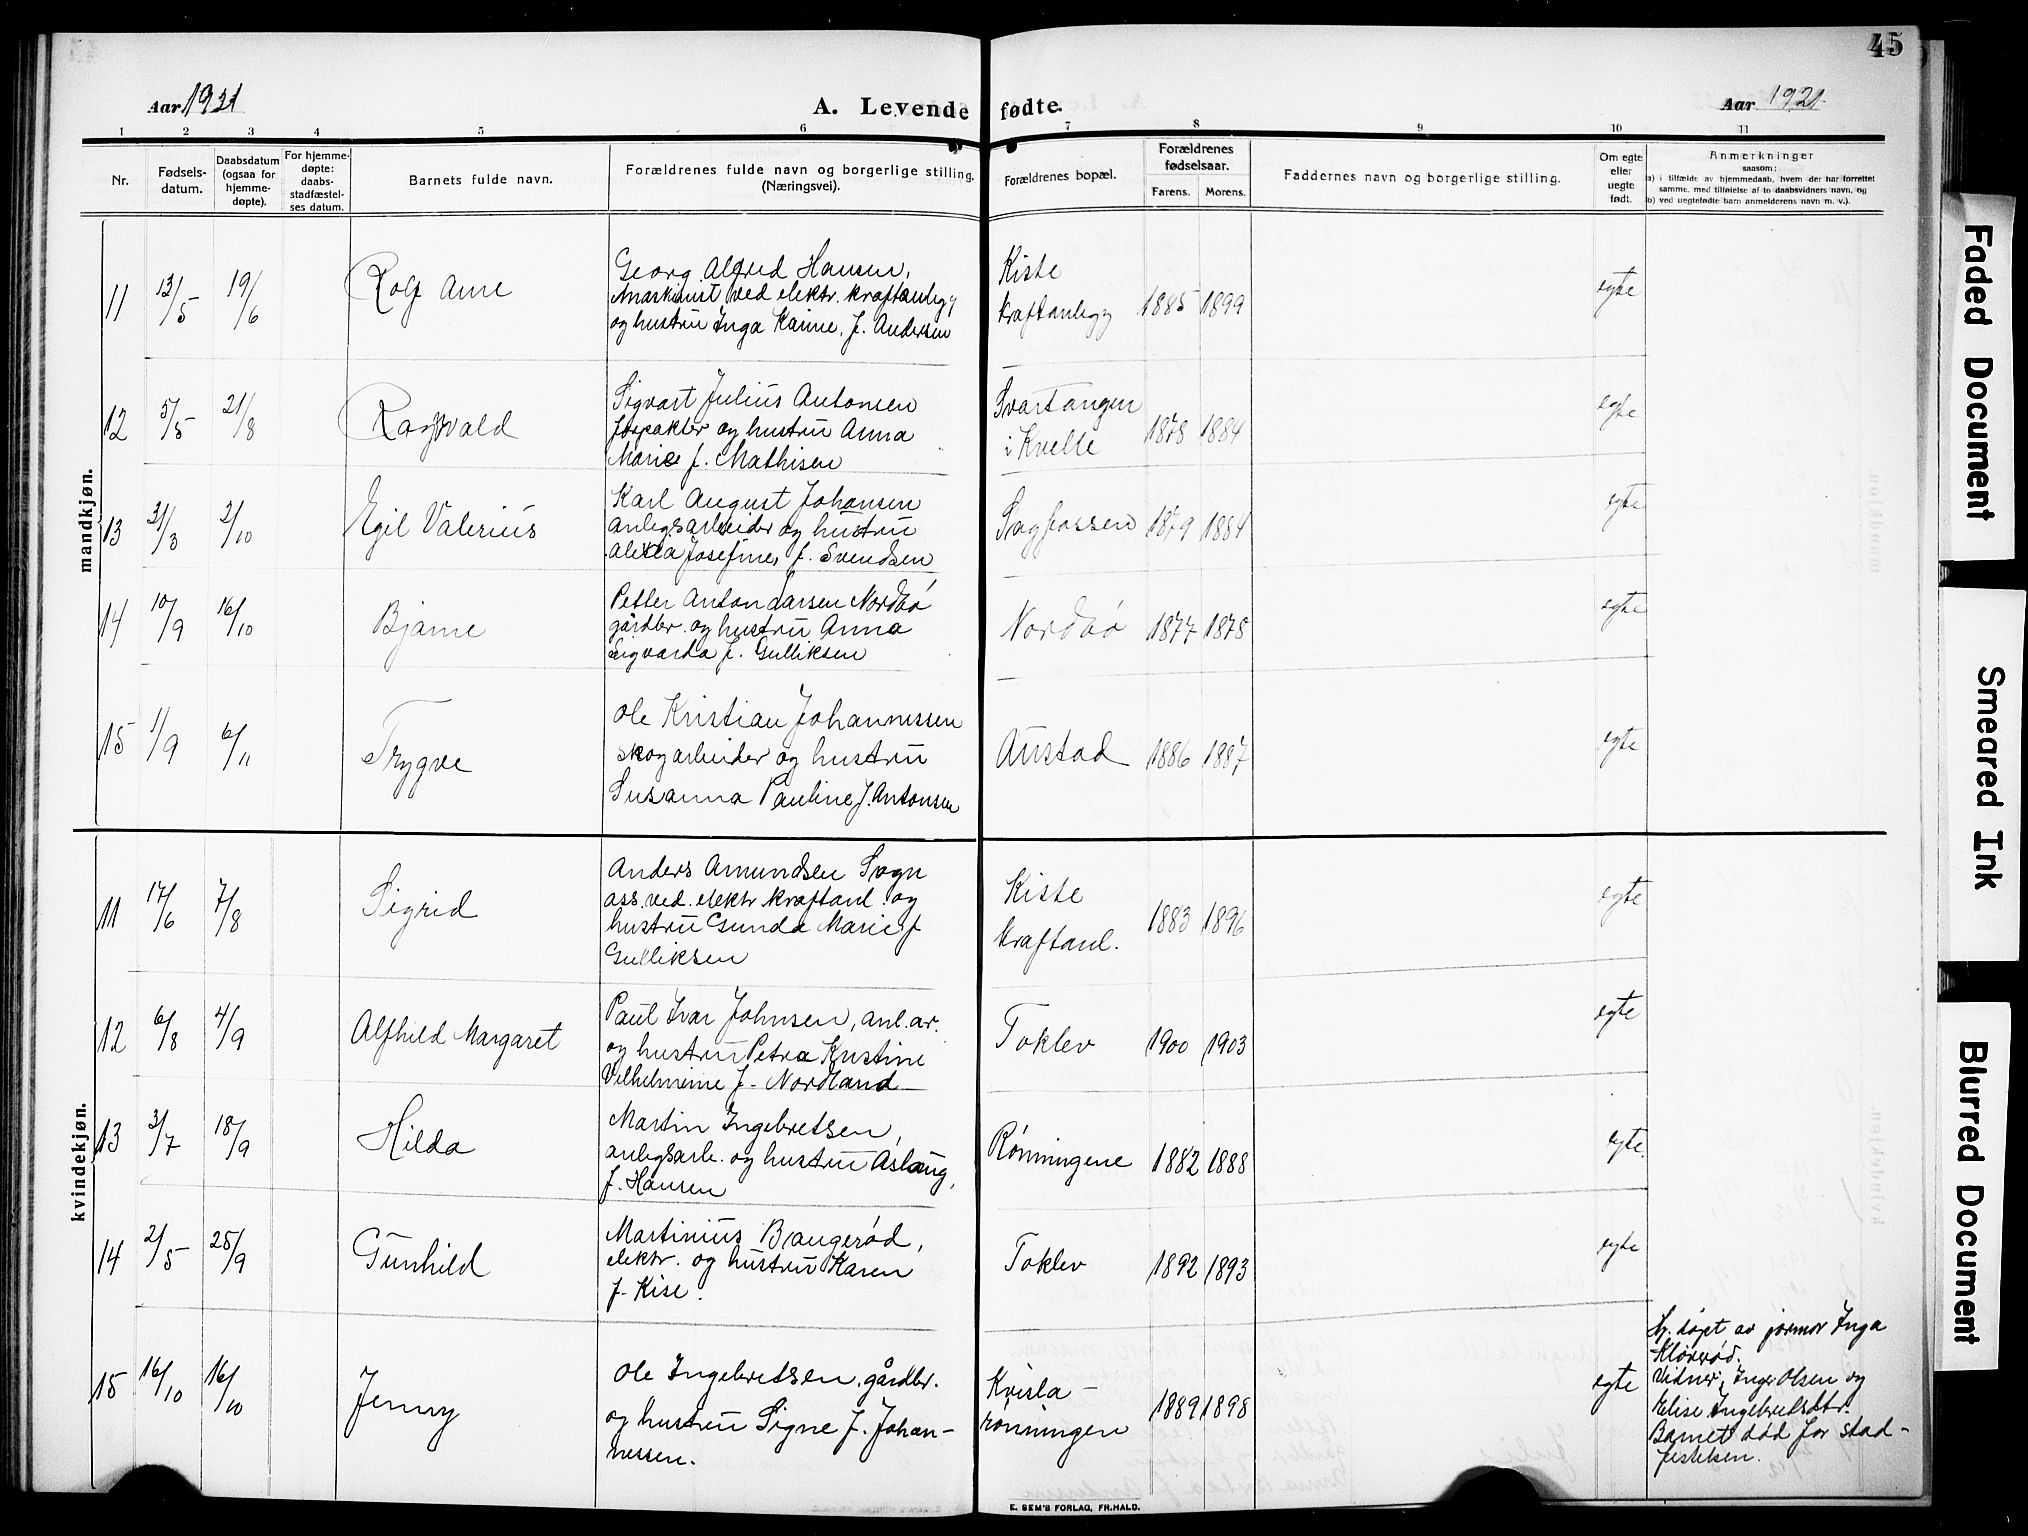 45
Aar 1921
A. Levende fødte.
Aar 1921.
1 2 3 4 5 6 7 8 9 10 11
Nr.
Fødsels-
datum.
Daabsdatum
(ogsaa for
hjemme-
døpte).
For hjemme-
døpte:
daabs-
stadfæstel-
ses datum.
Barnets fulde navn.
Forældrenes fulde navn og borgerlige stilling.
(Næringsvei).
Forældrenes bopæl.
Forældrenes
fødselsaar.
Farens. Morens.
Faddernes navn og borgerlige stilling.
Om egte
eller
uegte
født.
Anmerkninger
saasom:
a) i tilfælde av hjemmedaab, hvem der har forrettet
samme, med tilføielse af to daabsvidners navn, og
b) ved uegtefødte barn anmelderens navn m. v.).
mandkjøn.
11 13/5 19/6 Rolf Arne
Georg Alfred Hansen,
Maskinist ved elektr. kraftanlegg
og hustru Inga Karine, f. Andersen
Kiste
kraftanlegg
1885 1899 egte
12 5/5 21/8 Ragnvald
Sigvart Julius Antonsen
forpakter og hustru Anna
Marie f. Mathisen
Svartangen
i Kvelle
1878 1884 egte
13 31/3 2/10 Egil Valerius
Karl August Johansen
anlegsarbeider og hustru
Alexa Josefine, f. Svendsen
Sagfossen
1879 1884 egte
14 10/9 16/10 Bjarne
Petter Anton Larsen Nordbø
gårdbr. og hustru Anna
Sigvarda f. Gulliksen
Nordbø
1877 1878 egte
15 1/9 6/11 Trygve
Ole Kristian Johannessen
skogarbeider og hustru
Susanna Pauline f. Antonsen
Austad
1886 1887 egte
kvindekjøn.
11 17/6 7/8 Sigrid
Anders Amundsen Sogn
ass. ved. elektr kraftanl. og
hustru Gunda Marie f
Gulliksen
Kiste
kraftanl.
1883 1896 egte
12 6/8 4/9 Alfhild Margaret
Paul Ivar Johnsen, anl. ar.
og hustru Petra Kristine
Vilhelmine f. Nordland
Toklev
1900 1903 egte
13 3/7 18/9 Hilda
Martin Ingebretsen,
anlegsarb. og hustru Aslaug,
f. Hansen
Rønningene
1882 1888 egte.
14 2/5 25/9 Gunhild
Martinius Bangerød,
elektr. og hustru Karen
f. Kise.
Toklev
1892 1893 egte
15 16/10 16/10 Jenny
Ole Ingebretsen, gårdbr.
og hustru Signe f. Johan-
nessen.
Kvisla-
rønningen
1889 1898 egte
Hj. døpt av jormor Inga
Kløverød.
Vidner: Inge Olsen og
Elise Ingebretsdtr.
Barnet død før stad-
festelsen.
E. SEM'S FORLAG, FR.HALD.
Faded Document
Smeared Ink
Blurred Document